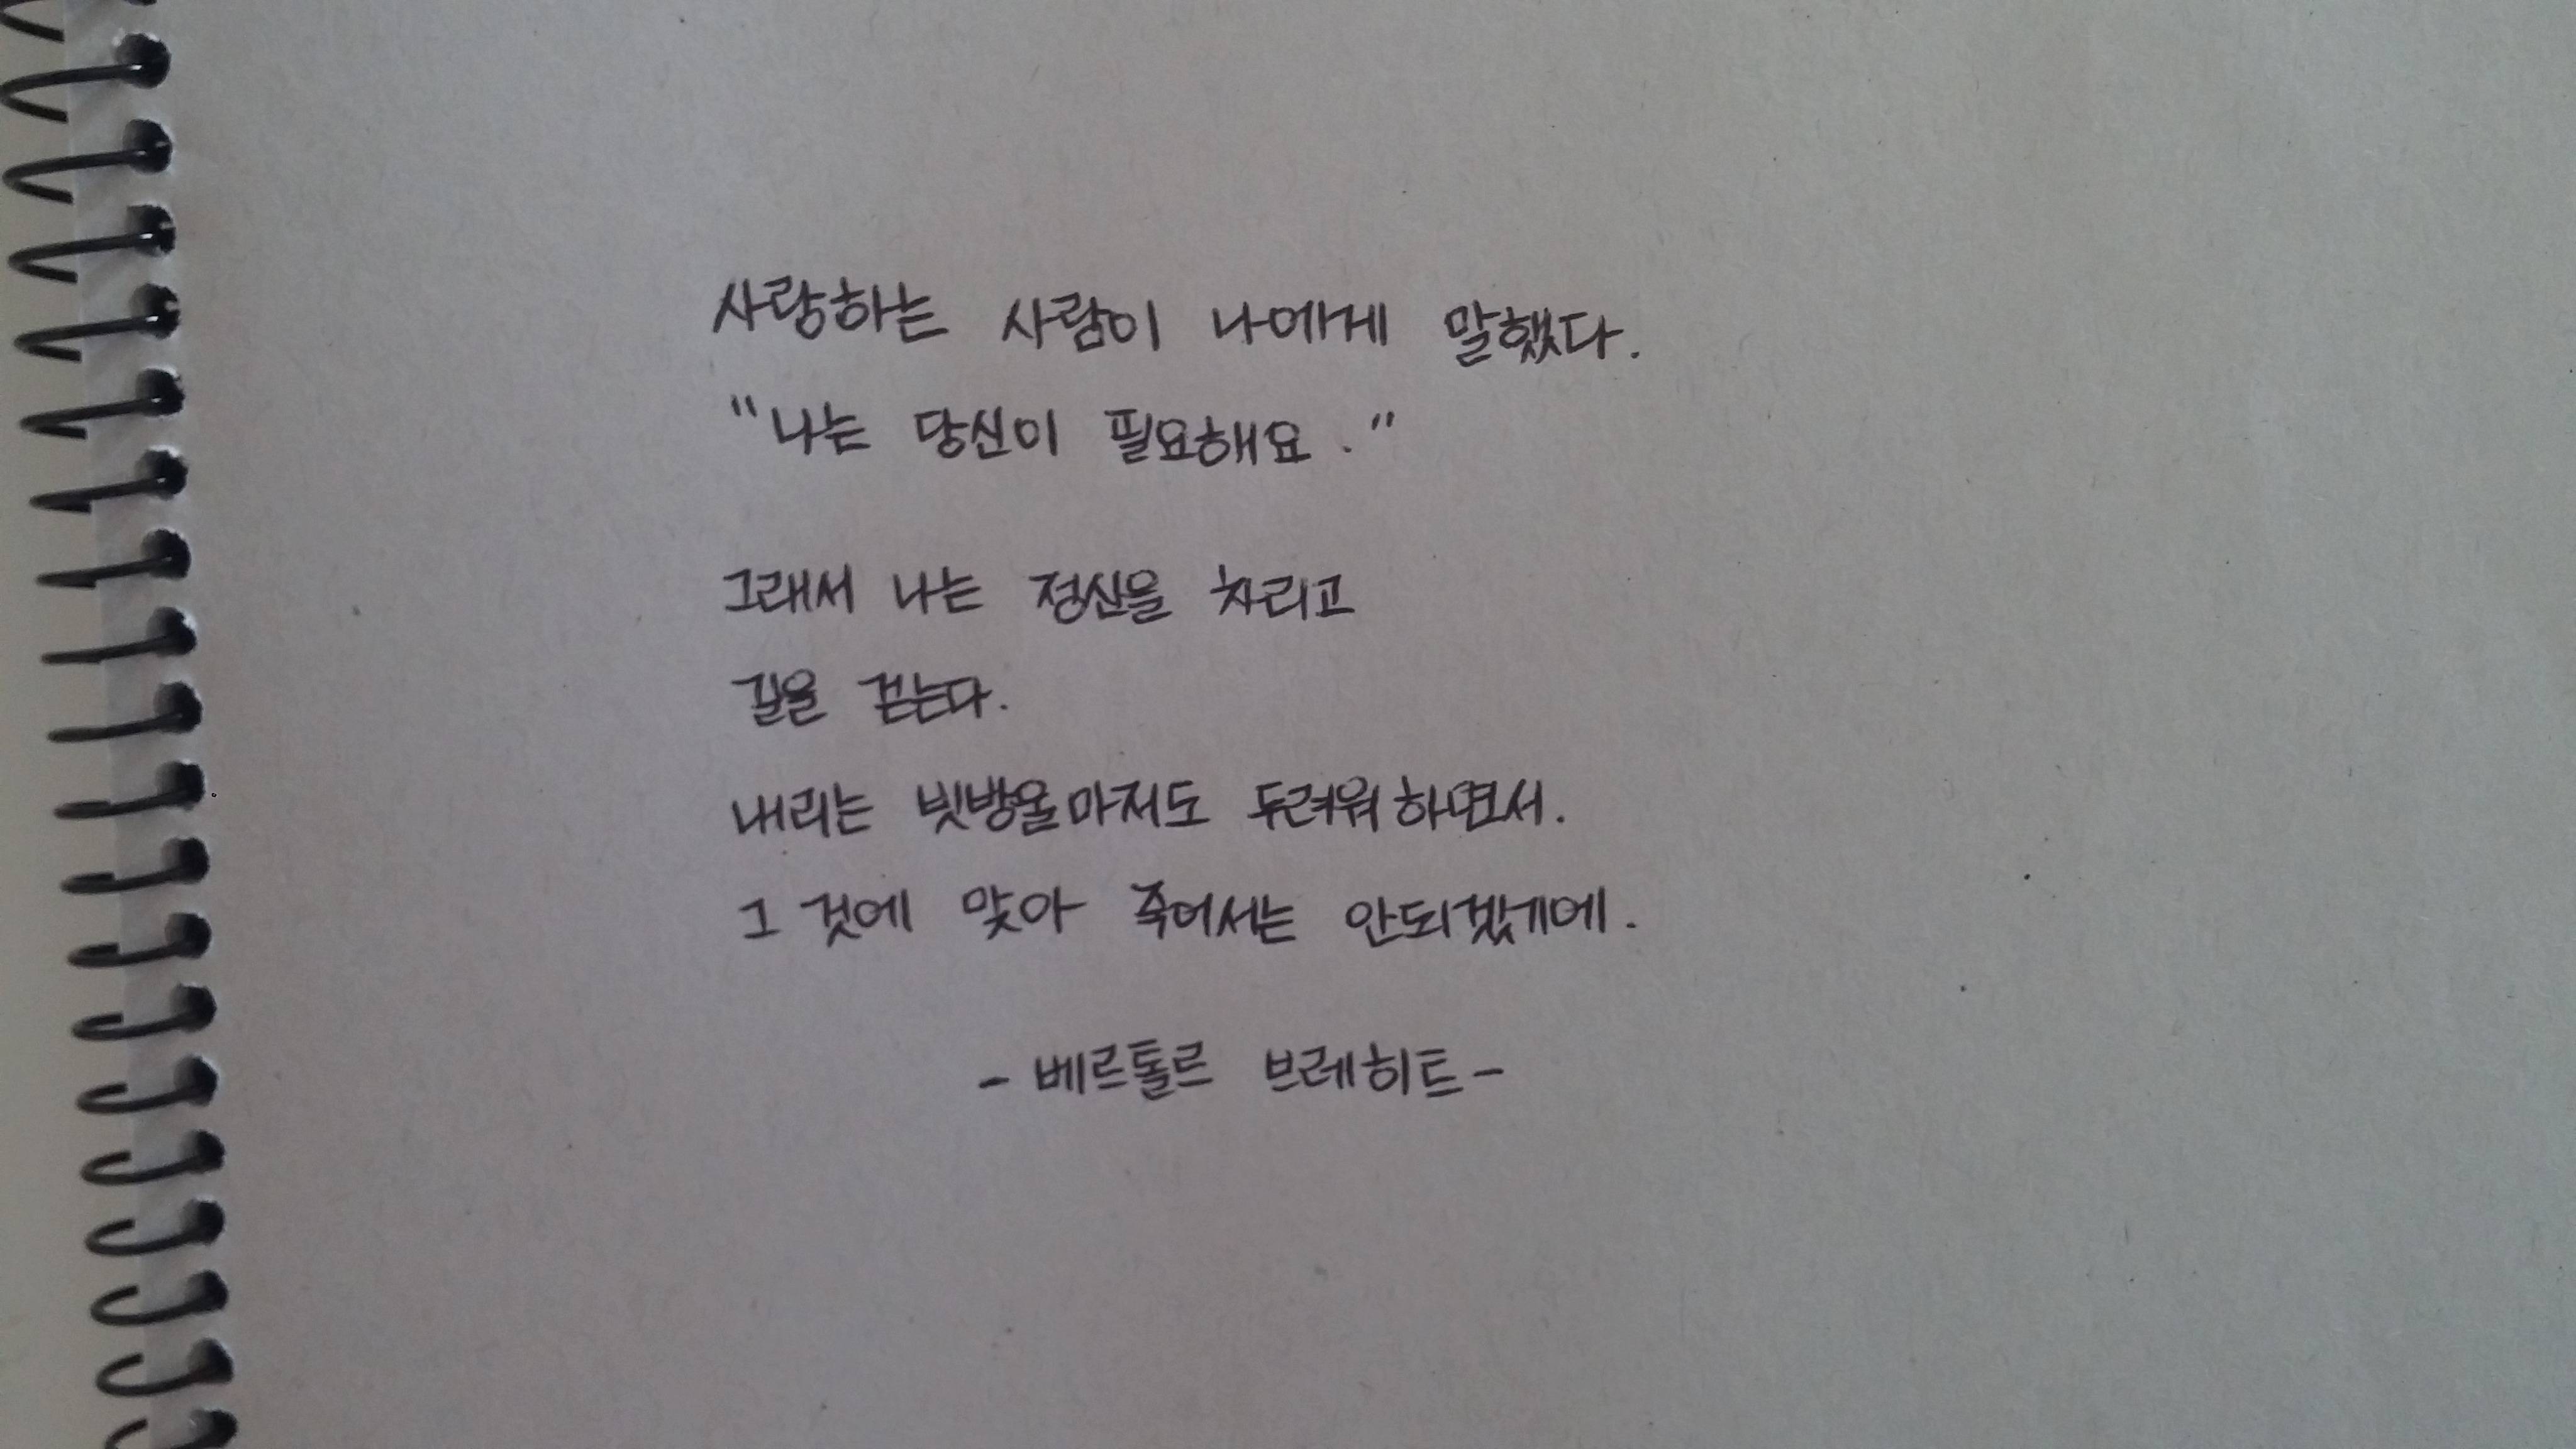 사랑하는 사람이 나에게 말했다.
"나는 당신이 필요해요."
그래서 나는 정신을 차리고
길을 걷는다.
내리는 빗방울마저도 두려워하면서.
그것에 맞아 죽어서는 안되겠기에.
- 베르톨르 브레히트 -